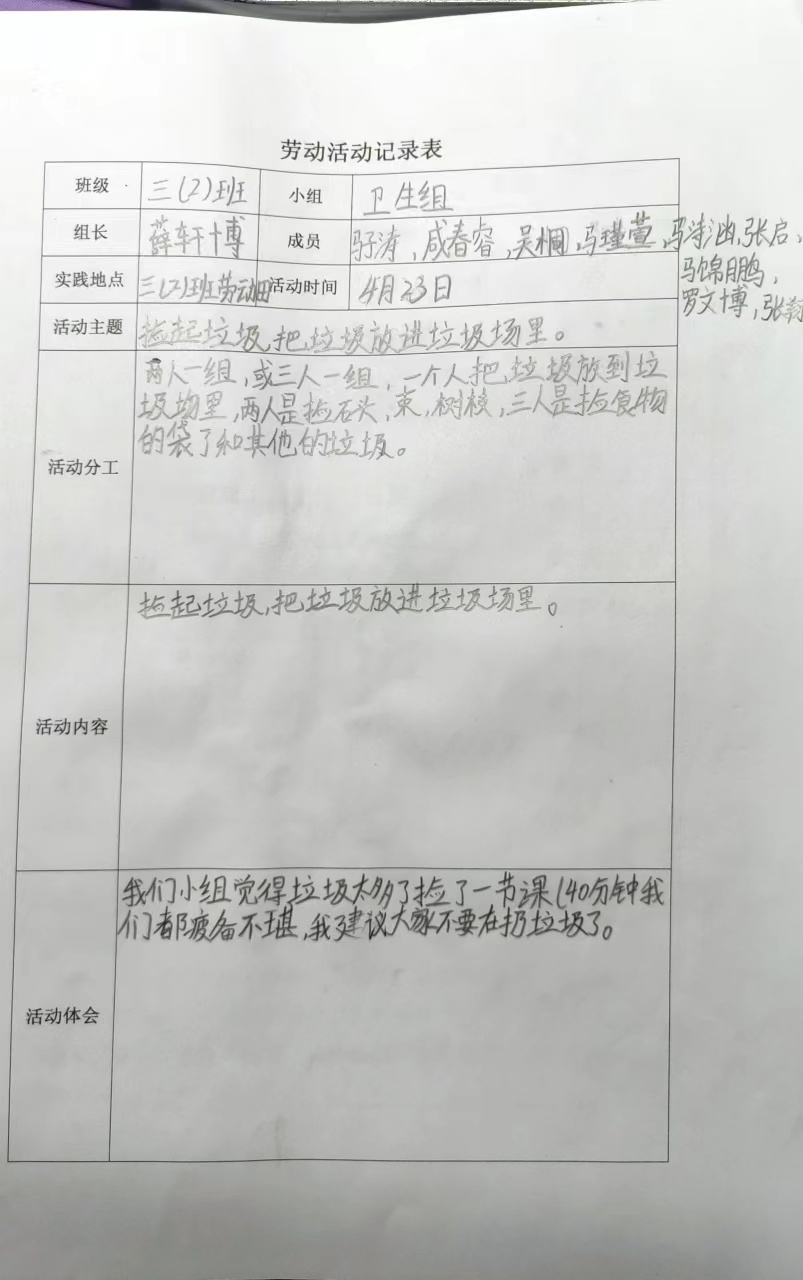 劳动活动记录表
班级 三(2)班 小组 卫生组
组长 薛轩博 成员 涛，咸春睿，吴桐，马瑾萱，马涵，张启、
马锦鹏，
罗文博，张
实践地点 三(2)班劳动田 活动时间 4月23日
活动主题 捡起垃圾，把垃圾放进垃圾场里。
活动分工 两人一组，或三人一组，一个人把垃圾放到垃
圾场里，两人是捡石头，束，树枝，三人是捡食物
的袋了和其他的垃圾。
活动内容 捡起垃圾，把垃圾放进垃圾场里。
活动体会 我们小组觉得垃圾太多了捡了一节课(40分钟我
们都疲备不堪，我建议大家不要在扔垃圾了。